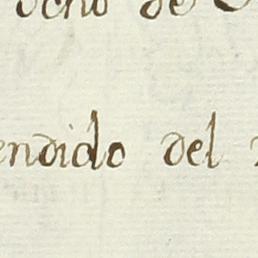 ocho de
endido del